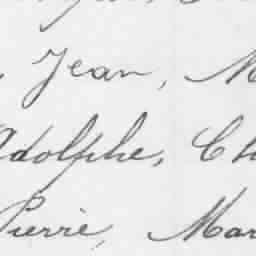 , Jean, M
Adolphe, Ch
Pierre, Mar